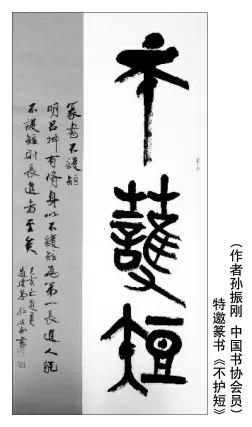 （作者孙振刚 中国书协会员）
特邀篆书《不护短》
不護短
篆書不護短
明呂坤有修身以不護短為第一長進人能
不護短則長進者至矣